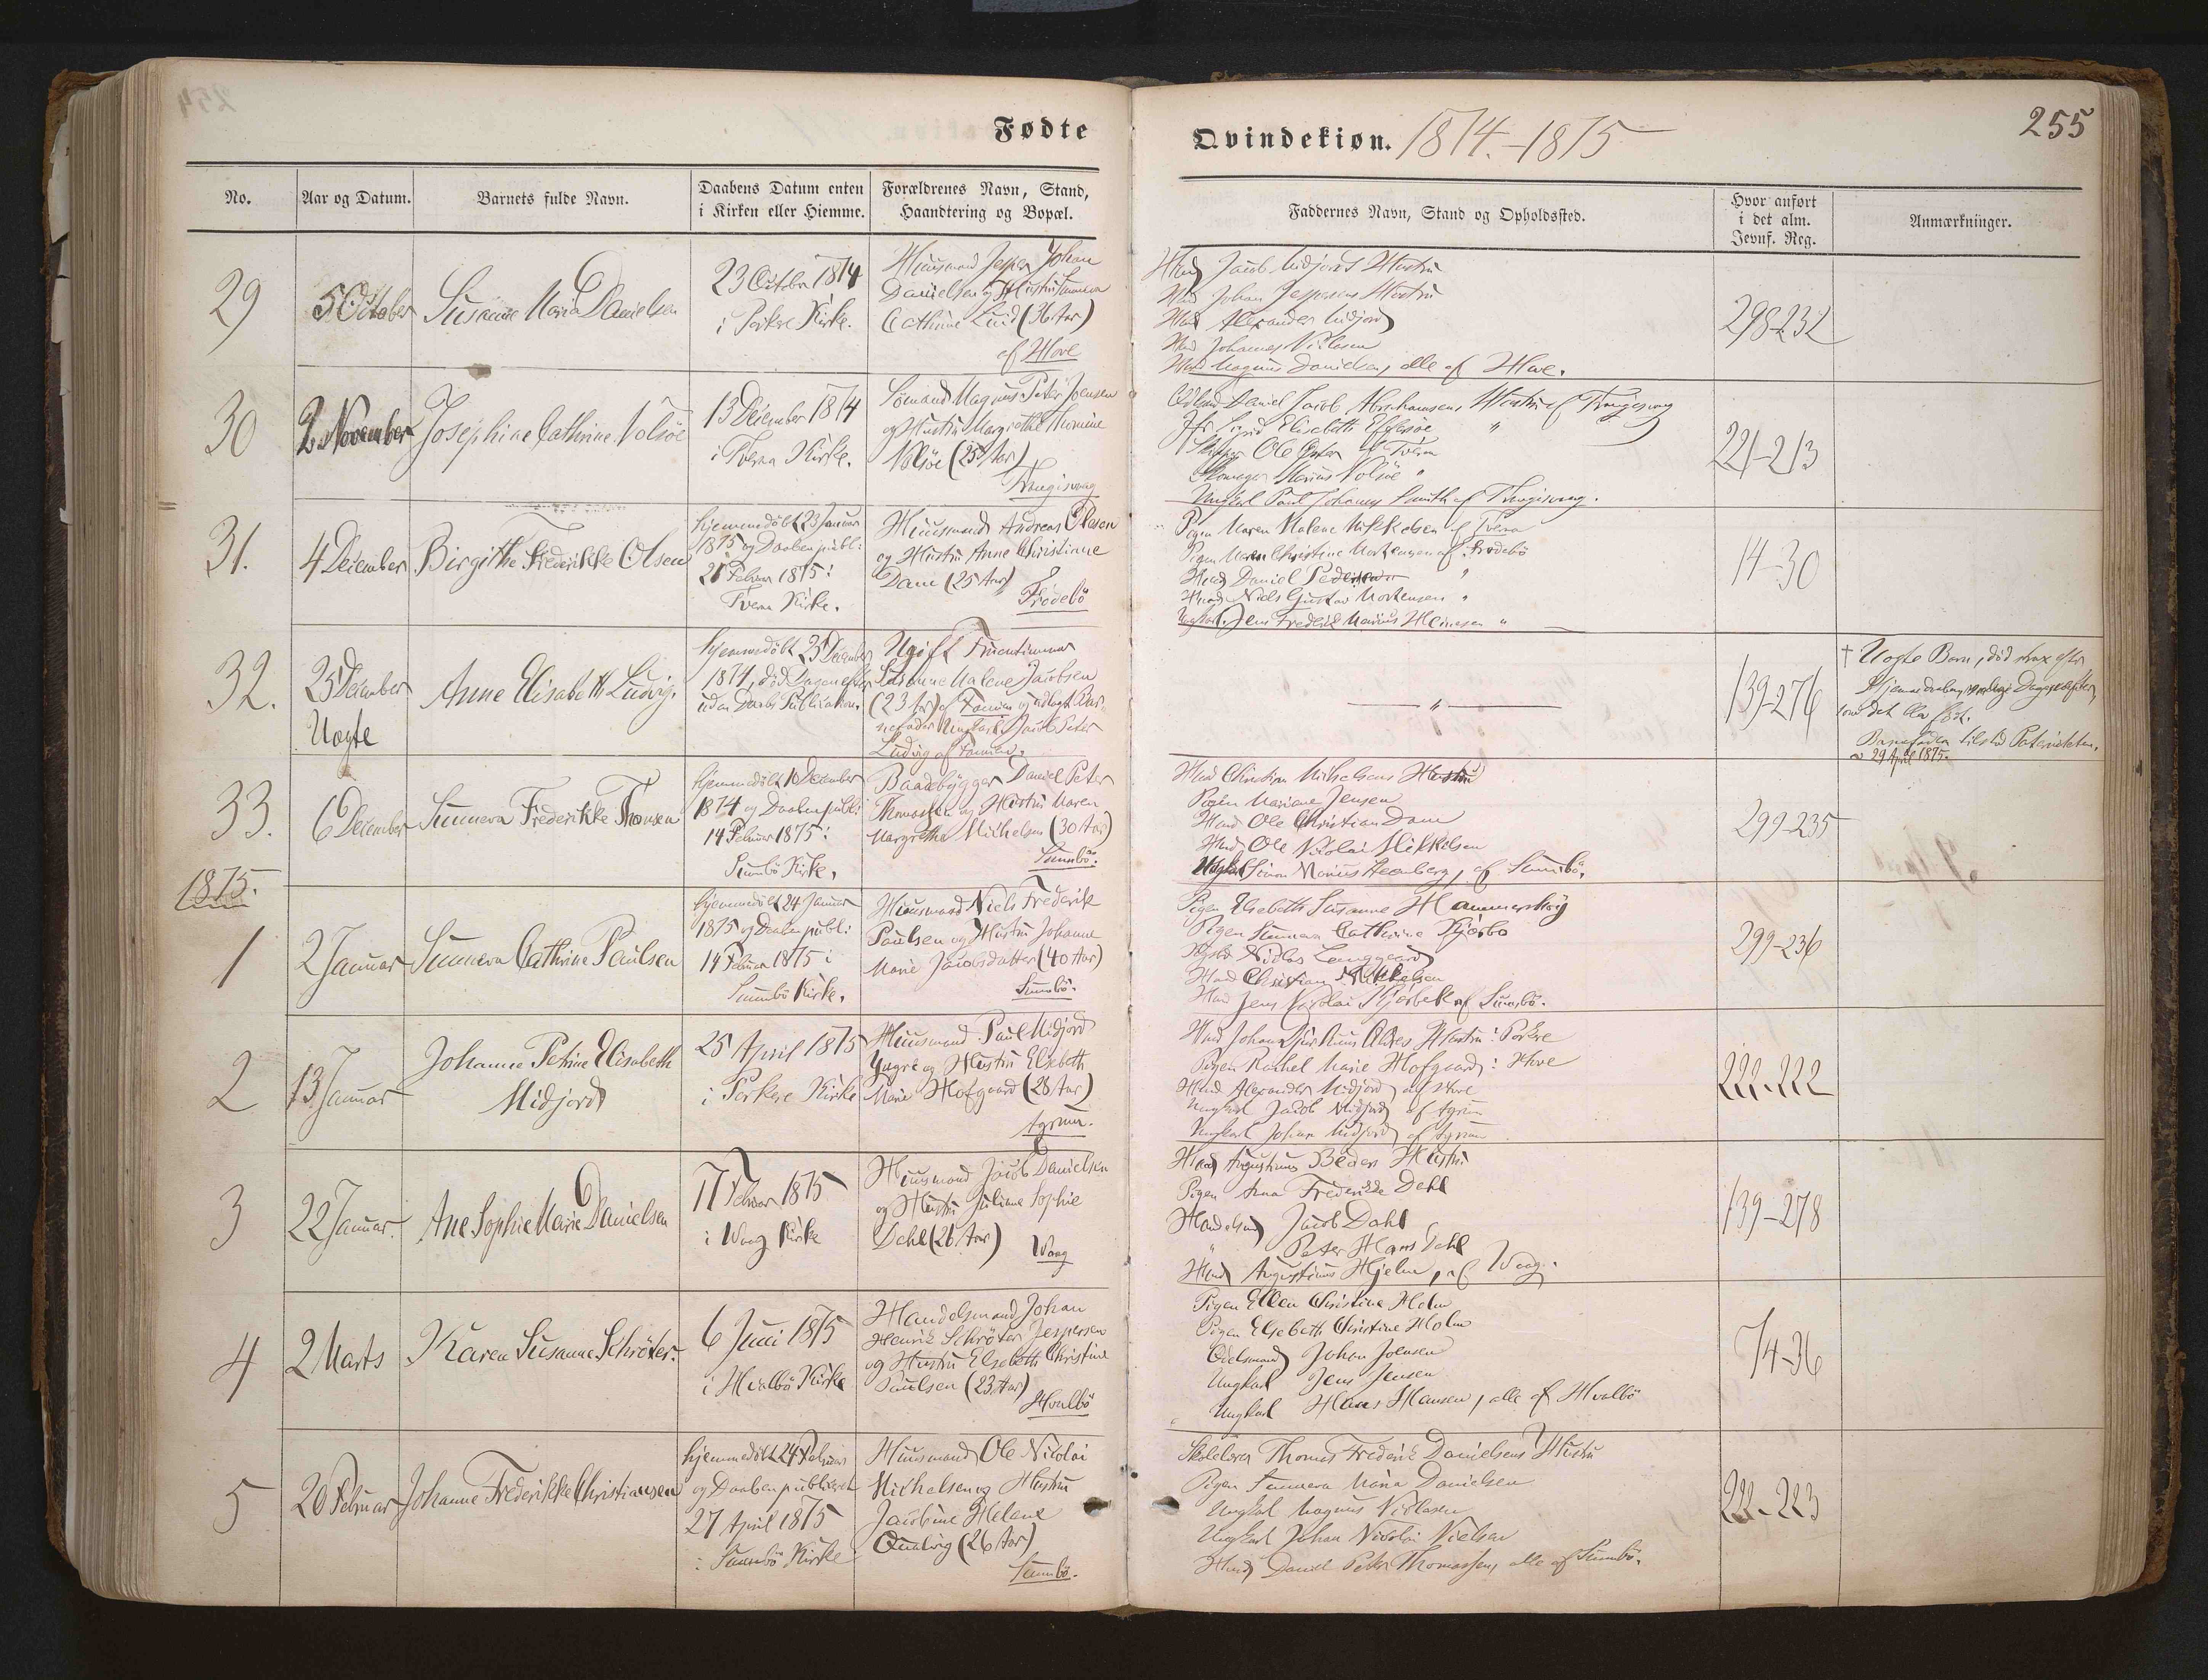 Fødte
Qvindekiøn. 1874.-1875
255
No.
Aar og Datum.
Barnets fulde Navn.
Daabens Datum enten
i Kirken eller Hiemme.
Forældrenes Navn, Stand,
Haandtering og Bopæl.
Faddernes Navn, Stand og Opholdssted.
Hvor anført
i det alm.
Jevnf. Reg.
Anmærkninger.
29
5 October
Susanne Maria Danielsen
23 October 1874
i Porkere Kirke.
Huusmand Jesper Johan
Danielsen og Hustru Sunneva
Cathrine Luid (36 Aar)
af Hove
Hmd Jacob Midjords Hustru
Hmd Johan Jespersens Hustru
Hmd Alexander Midjord
Hmd Johannes Niclasen
Hmd Magnus Danielsen, alle af Hove.
298-232
30
2 November
Josephine Cathrine Volsöe
13 December 1874
i Tveraa Kirke.
Sömand Magnus Peter Joensen
og Hustru Margrethe Thomine
Volsöe (25 Aar)
Trangisvaag
Odelsmd Daniel Jacob Abrahamsens Hustru af Trangisvaag
Elisabeth
Ole af Tveraa
Marius Volsöe "
Ungkarl Poul Johannes Smith af Trangisvaag.
221-213
31.
4 December
Birgithe Frederikke Olsen
hjemmedöbt 23 Januar
1875 og Daaben publ:
21 Februar 1875 i
Tveraa Kirke.
Huusmand Andreas Olesen
og Hustru Anne Christinne
Dam (25 Aar)
Frodebö
Pigen Maren Malene Mikkelsen af Tveraa
Pigen Maren Christine Mortensen af Frodebö
Hmd Daniel Pedersen "
Hmd Niels Gustav Mortensen "
Ungkarl. Jens Frederik Marius Heinesen "
14-30
32.
25 December
Uægte
Anne Elisabeth Ludvig.
hjemmedöbt 25 December
1874, död Dagen efter
uden Daabs Publication.
Ugift Fruentimmer
Susanne Malene Jacobsen
(23 Aar) af Famien og udlagt Bar-
nefader Ungkarl Jacob Peter
Ludvig af Famien.
"
139-276
† Uægte Barn, död strax efter
Hjemmedaaben Dagen efter,
som det blev födt.
Barnefader tilstod Paterniteten.
29 April 1875.
33.
6 December
Sunneva Frederikke Thomsen
hjemmedöbt 10 December
1874 og Daaben publ:
14 Februar 1875 i
Sumbö Kirke.
Baadbygger Daniel Peter
Thomassen og Hustru Maren
Margretha Michelsen (30 Aar)
Sumbö.
Hmd Christian Michelsens Hustru
Pigen Mariane Jensen
Hmd Ole Christian Dam
Hmd Ole Nicolai Mikkelsen
Ungkarl Simon Marius Heenberg, af Sumbö.
299-235
1875.
1
2 Januar
Sunneva Cathrine Paulsen
hjemmedöbt 24 Januar
1875 og Daaben publ:
14 Februar 1875 i
Sumbö Kirke.
Huusmand Niels Frederik
Poulsen og Hustru Johanne
Marie Jacobsdatter (40 Aar)
Sumbö.
Pigen Elsebeth Susanne Hammershög
Pigen Sunneva Catherine Kjærbo
Niclas Lenggaard
Hmd Christian Mikkelsen
Hmd Jens Nicolai Kjærbek af Sumbö.
299-236
2
13. Januar
Johanne Petrine Elisabeth
Midjord
25 April 1875
i Porkere Kirke
Huusmand Poul Midjord
Yngre og Hustru Elsebeth
Marie Hofgaard (28 Aar)
Agrum.
Hustru i Porkere
Pigen Rachel Marie Hofgaard i Hove
Hmd Alexander Midjord af Hove
Ungkarl Jacob Midjord af Agrum
Ungkarl Johan Midjord af Agrum
222-222
3
22 Januar.
Ane Sophie Marie Danielsen
17 Februar 1875
i Waag Kirke
Huusmand Jacob Danielsen
og Hustru Juliane Sophie
Dehl (26 Aar)
Waag
Hmd Augustinus Beders Hustru
Pigen Anna Frederikke Dehl
Handelsmd Jacob Dahl
" Peter Hans Dehl
Hmd Augustinus Hjelm, af Waag.
139-278
4
2 Marts
Karen Susanne Schröter.
6 Juni 1875
i Hvalbö Kirke
Handelsmand Johan
Henrik Schröter Jespersen
og Hustru Elsebeth Christine
Poulsen (23 Aar)
Hvalbö
Pigen Ellen Christine Holm
Pigen Elsebeth Christine Holm
Odelsmand Johan Joensen
Ungkarl Jens Jensen
Ungkarl Hans Hansen, alle af Hvalbö
74-36
5
20 Februar
Johanne Frederikke Christiansen
hjemmedöbt 24 Februar
og Daaben publiceret
27 April 1875
i Sumbö Kirke
Huusmand Ole Nicolai
Michelsen og Hustru
Jacobine Helene
Qualvig (26 Aar)
Sumbö.
Skolelærer Thomas Frederik Danielsens Hustru
Pigen Sunneva Maria Danielsen
Ungkarl Magnus Niclasen
Ungkarl Johan Nicolai Nielsen
Hmd Daniel Peter Thomassen, alle af Sumbö.
222-223